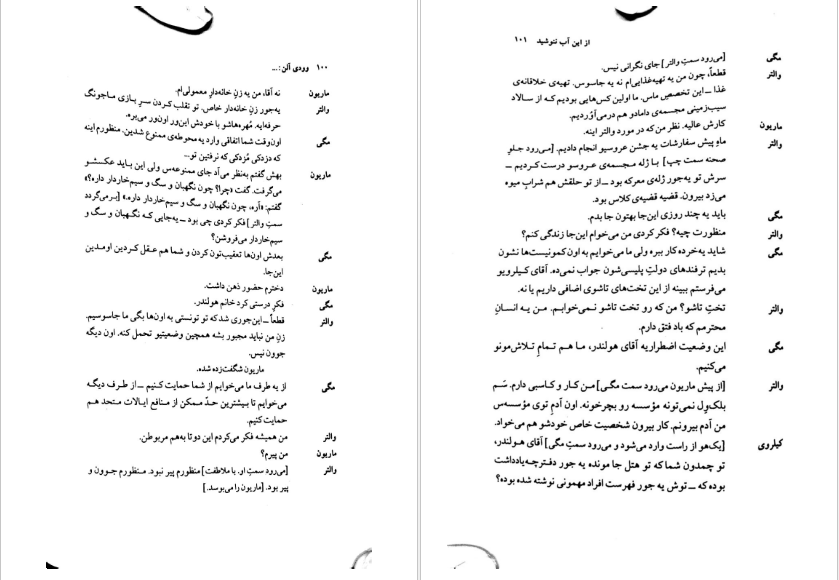 ۱۰۰ وودی آلن: ...
ماریون نه آقا، من یه زنِ خانه‌دارِ معمولی‌ام.
والتر یه‌جور زنِ خانه‌دار خاص. تو تقلب کردن سرِ بازی ماجونگ
حرفه‌ایه. مُهره‌هاشو با خودش این‌ور اون‌ور می‌بره.
مگی اون‌وقت شما اتفاقی وارد یه محوطه‌ی ممنوع شدین. منظورم اینه
که دزدکی مُزدکی که نرفتین تو...
ماریون بهش گفتم به‌نظر می‌آد جای ممنوعه‌س ولی این باید عکسشو
می‌گرفت. گفت «چرا؟ چون نگهبان و سگ و سیم‌خاردار داره؟»
گفتم: «آره، چون نگهبان و سگ و سیم‌خاردار داره.» [برمی‌گردد
سمتِ والتر] فکر کردی چی بود ــ یه‌جایی که نگهبان و سگ و
سیم‌خاردار می‌فروشن؟
مگی بعدش اون‌ها تعقیب‌تون کردن و شما هم عقل کردین اومدین
این‌جا.
ماریون دخترم حضور ذهن داشت.
مگی فکرِ درستی کرد خانم هولندر.
والتر قطعاً ــ این‌جوری شد که تو تونستی به اون‌ها بگی ما جاسوسیم.
زنِ من نباید مجبور بشه همچین وضعیتیو تحمل کنه. اون دیگه
جوون نیس.
ماریون شگفت‌زده شده.
مگی از یه طرف ما می‌خوایم از شما حمایت کنیم ــ از طرف دیگه
می‌خوایم تا بیشترین حدّ ممکن از منافع ایالات متحد هم
حمایت کنیم.
والتر من همیشه فکر می‌کردم این دوتا به‌هم مربوطن.
ماریون من پیرم؟
والتر [می‌رود سمتِ او. با ملاطفت] منظورم پیر نبود. منظورم جوون و
پیر بود. [ماریون را می‌بوسد.]
از این آب ننوشید ۱۰۱
مگی [می‌رود سمتِ والتر] جای نگرانی نیس.
والتر قطعاً، چون من یه تهیه‌غذایی‌ام نه یه جاسوس. تهیه‌ی خلاقانه‌ی
غذا ــ این تخصصِ ماس. ما اولین کس‌هایی بودیم که از سالاد
سیب‌زمینی مجسمه‌ی دامادو هم درمی‌آوردیم.
ماریون کارش عالیه. نظر من که در مورد والتر اینه.
والتر ماهِ پیش سفارشات یه جشن عروسیو انجام دادیم. [می‌رود جلوِ
صحنه سمت چپ] با ژله مجسمه‌ی عروسو درست کردیم ــ
سرش تو یه‌جور ژله‌ی معرکه بود ــ از تو حلقش هم شرابِ میوه
می‌زد بیرون. قضیه قضیه‌ی کلاس بود.
مگی باید یه چند روزی این‌جا بهتون جا بدم.
والتر منظورت چیه؟ فکر کردی من می‌خوام این‌جا زندگی کنم؟
مگی شاید یه‌خرده کار ببره ولی ما می‌خوایم به اون کمونیست‌ها نشون
بدیم ترفندهای دولتِ پلیسی‌شون جواب نمی‌ده. آقای کیلرویو
می‌فرستم ببینه از این تخت‌های تاشوی اضافی داریم یا نه.
والتر تختِ تاشو؟ من که رو تخت تاشو نمی‌خوابم. من یه انسانِ
محترمم که باد فتق دارم.
مگی این وضعیت اضطراریه آقای هولندر، ما هم تمامِ تلاش‌مونو
می‌کنیم.
والتر [از پیش ماریون می‌رود سمت مگی] من کار و کاسبی دارم. سَم
بلک‌وِل نمی‌تونه مؤسسه رو بچرخونه. اون آدمِ توی مؤسسه‌س
من آدم بیرونم. کار بیرون شخصیت خاص خودشو هم می‌خواد.
کیلروی [یک‌هو از راست وارد می‌شود و می‌رود سمتِ مگی] آقای هولندر،
تو چمدون شما که تو هتل جا مونده یه جور دفترچه‌یادداشت
بوده که ــ توش یه جور فهرست افراد مهمونی نوشته شده بوده؟